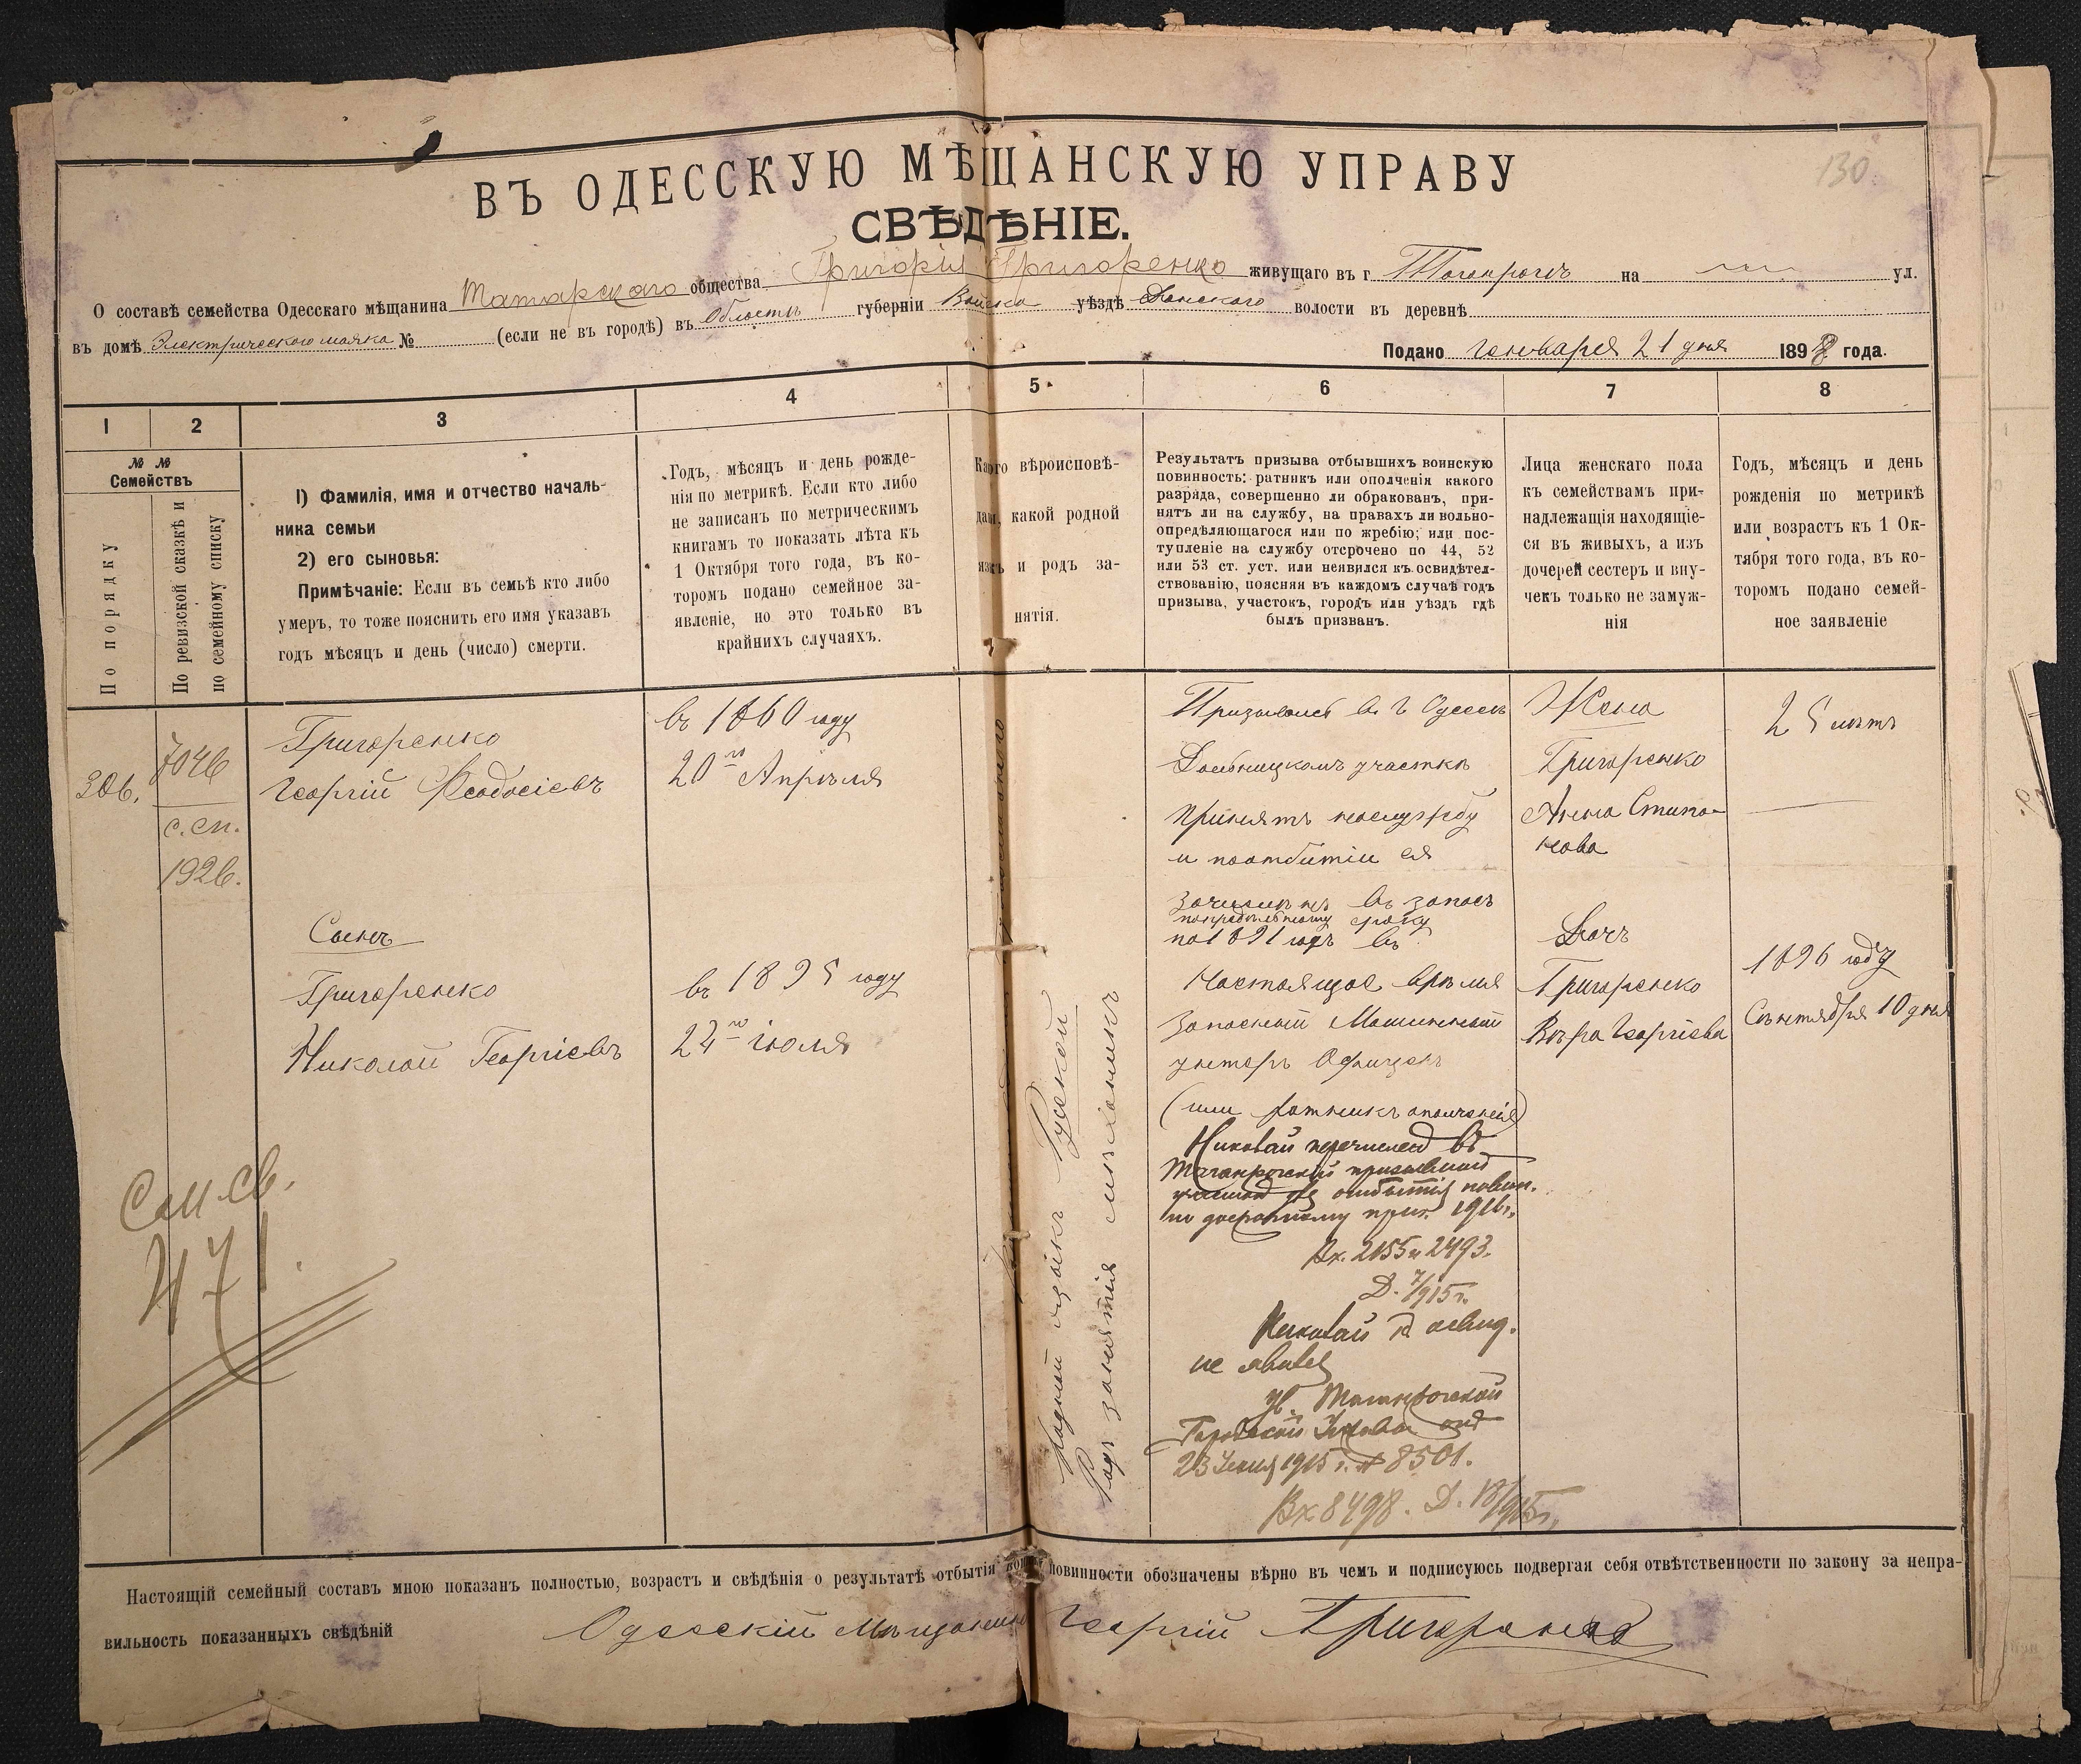 130
ВЪ ОДЕССКУЮ МѢЩАНСКУЮ УПРАВУ
СВѢДѢНІЕ.
О составѣ семейства Одесскаго мѣщанина Татарскаго общества Григорія Григоренко живущаго въ г. Тоганрогѣ на ул.
въ домѣ Электрического маяка № (если не въ городѣ) въ Область губерніи Войска уѣздѣ Донского волости въ деревнѣ
Подано генваря 21 дня 1898 года.
1 2 3 4 5 6 7 8
№ № Семействъ
По порядку
По ревизской сказкѣ и по семейному списку
1) Фамилія, имя и отчество началь-
ника семьи
2) его сыновья:
Примѣчаніе: Если въ семьѣ кто либо
умеръ, то тоже пояснить его имя указавъ
годъ мѣсяцъ и день (число) смерти.
Годъ, мѣсяцъ и день рожде-
нія по метрикѣ. Если кто либо
не записанъ по метрическимъ
книгамъ то показать лѣта къ
1 Октября того года, въ ко-
торомъ подано семейное за-
явленіе, но это только въ
крайнихъ случаяхъ.
Какого вѣроисповѣ-
данія, какой родной
языкъ и родъ за-
нятія.
Результатъ призыва отбывшихъ воинскую
повинность: ратникъ или ополченія какого
разряда, совершенно ли обракованъ, при-
нятъ ли на службу, на правахъ ли вольно-
опредѣляющагося или по жребію; или пос-
тупленіе на службу отсрочено по 44, 52
или 53 ст. уст. или неявился къ освидѣтел-
ствованію, поясняя въ каждомъ случаѣ годъ
призыва, участокъ, городъ или уѣздъ гдѣ
былъ призванъ.
Лица женскаго пола
къ семействамъ при-
надлежащія находящіе-
ся въ живыхъ, а изъ
дочерей сестеръ и вну-
чекъ только не замуж-
нія
Годъ, мѣсяцъ и день
рожденія по метрикѣ
или возрастъ къ 1 Ок-
тября того года, въ ко-
торомъ подано семей-
ное заявленіе
306.
7046
с. сп.
1926.
Григоренко
Георгій Феодосіевъ
въ 1860 году
20го Апрѣля
Сынъ
Григоренко
Николай Георгіевъ
въ 1895 году
22го іюля
Сем. св.
471.
Родной языкъ Русской
Родъ занятія механикъ
Призывался въ г Одессѣ
участкѣ
принятъ наслужбу
и поотбытіи ея
зачисленъ въ запасъ
сроку
по 1891 годъ въ
Настоящее время
запасный Машинный
унтеръ Офицеръ
(или ратникъ ополченія)
Николай перечислен въ
Таганрогский призывной
участок для отбытія повин.
по досрочному приз. 1916 г.
Вх. 2155 и 2493.
Д. 7/915 г.
Николай к освид.
не явился
ув. Таганрогской
Городской Управы от
23 1915 г. № 8501.
Вх 8498. Д. 18/915 г.
Жена
Григоренко
Анна Степа-
нова
25 лѣтъ
Дочь
Григоренко
Вѣра Георгіева
1896 году
Сентября 10 дня
Настоящій семейный составъ мною показанъ полностью, возрастъ и свѣдѣнія о результатѣ отбытія воин. повинности обозначены вѣрно въ чемъ и подписуюсь подвергая себя отвѣтственности по закону за непра-
вильность показанныхъ свѣдѣній Одесскій Мѣщанинъ Георгій Григоренко